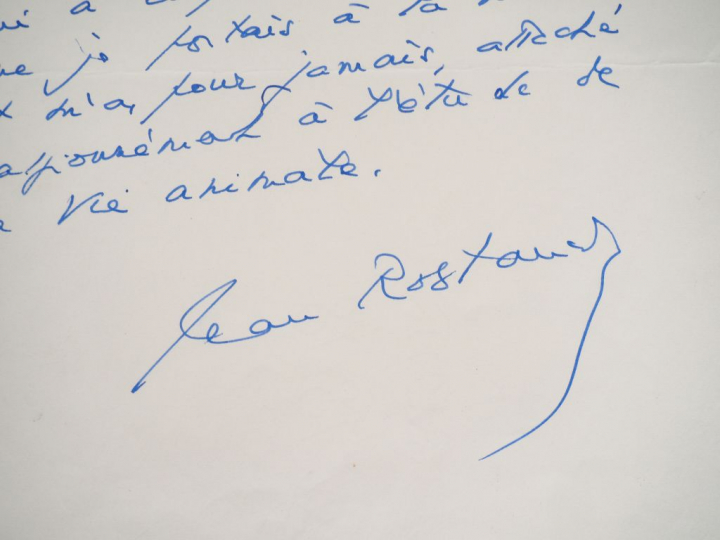 à
je portais à la
m'a, pour jamais, attaché
passionnément à l'étude de
vie animale.
Jean Rostand